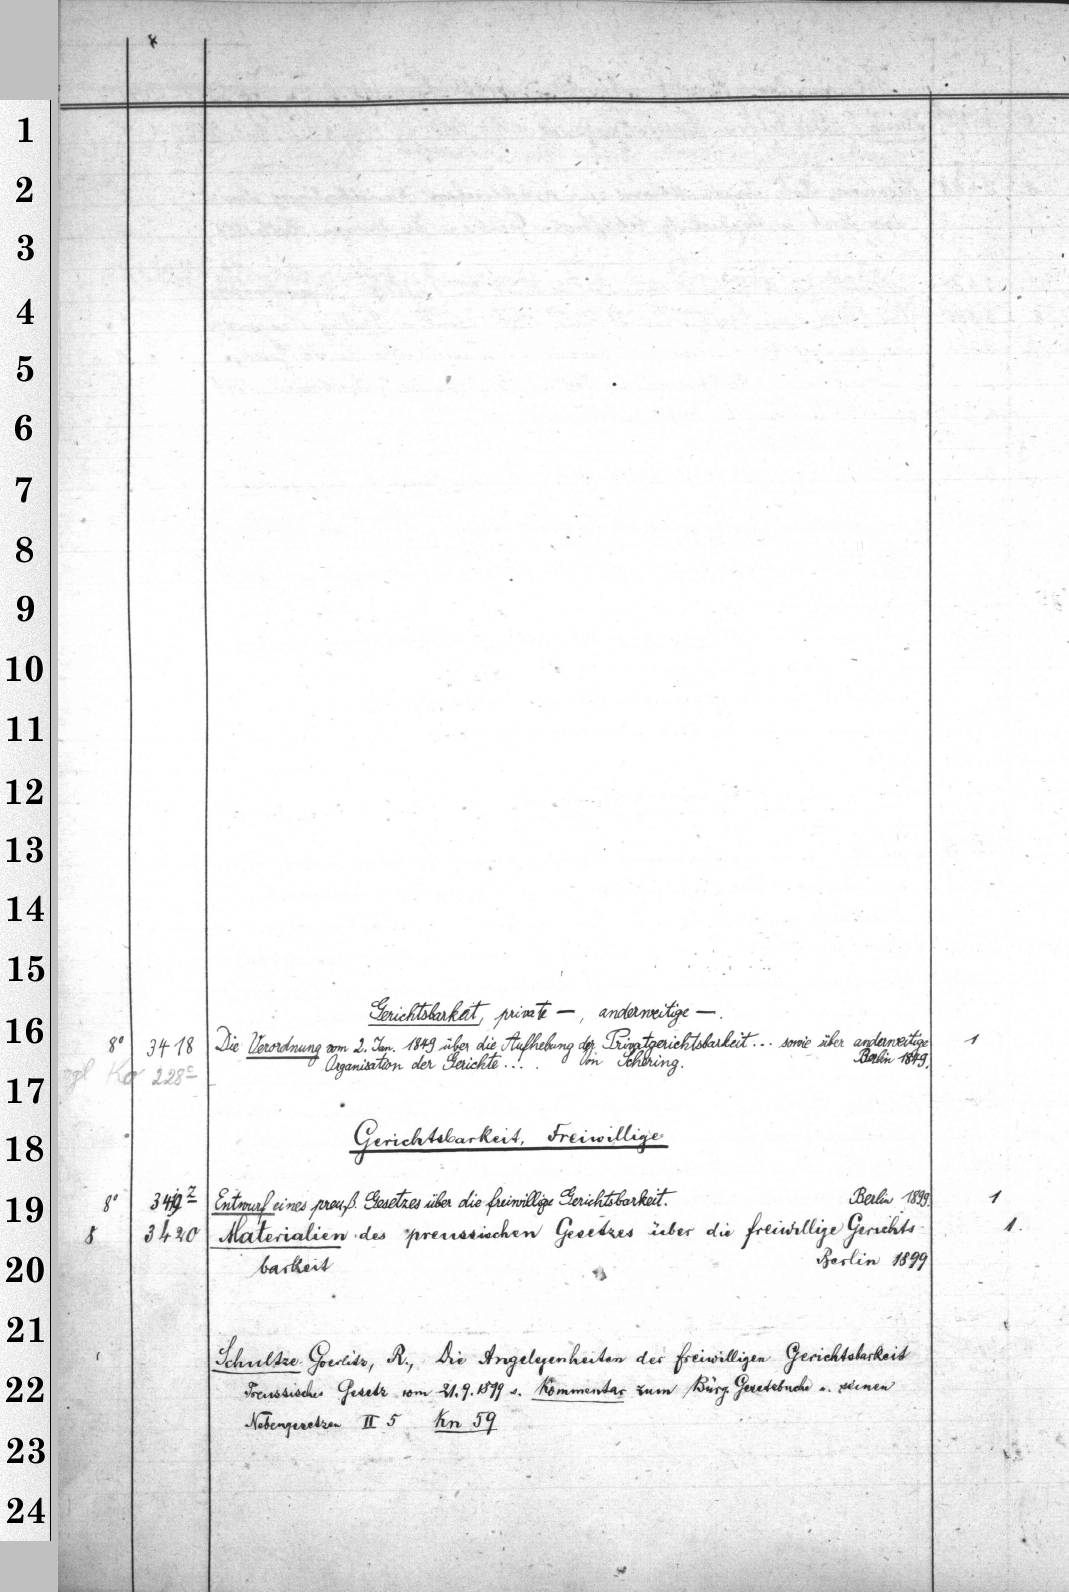 1
2
3
4
5
6
7
8
9
10
11
12
13
14
15
16
17
18
19
20
21
22
23
24
Gerichtsbarkeit, private —, anderweitige —.
8° 3418 Die Verordnung vom 2. Jan. 1849 über die Aufhebung der Privatgerichtsbarkeit... sowie über anderweitige 1
Organisation der Gerichte.... Von Schering. Berlin 1849.
vgl Ko 228c
Gerichtsbarkeit, Freiwillige
8° 3419z Entwurf eines preuß. Gesetzes über die freiwillige Gerichtsbarkeit. Berlin 1899. 1
8 3420 Materialien des preussischen Gesetzes über die freiwillige Gerichts- 1.
barkeit Berlin 1899
Schultze-Goerlitz, R., Die Angelegenheiten der freiwilligen Gerichtsbarkeit
Preussisches Gesetz vom 21.9.1899 s. Kommentar zum Bürg. Gesetzbuche u. seinen
Nebengesetzen II 5 Kn 59